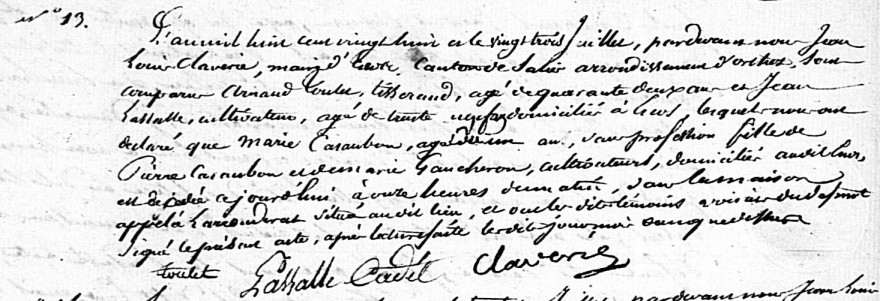 N° 13.
L'an mil huit cent vingt huit et le vingt trois Juillet, pardevant nous Jean
Louis Claverie, maire d' canton de Salies arrondissement d'orthez, sont
comparus Arnaud Toulet, tisserand, agé de quarante deux ans et Jean
Lassalle, cultivateur, agé de trente domicilié à lesquels nous ont
déclaré que Marie Casaubon, agée d'un an, sans profession fille de
Pierre Casaubon et de marie Gaucheron, cultivateurs, domicilié audit
est décédée ajourd'hui à onze heures du matin, dans la maison
appelé situé au dit lieu, et ont les dits témoins
signé le présent acte, après lecture faite les dits jour mois et an que dessus
toulet Lassalle Cadet Claverie
Juillet, pardevant nous Jean Louis